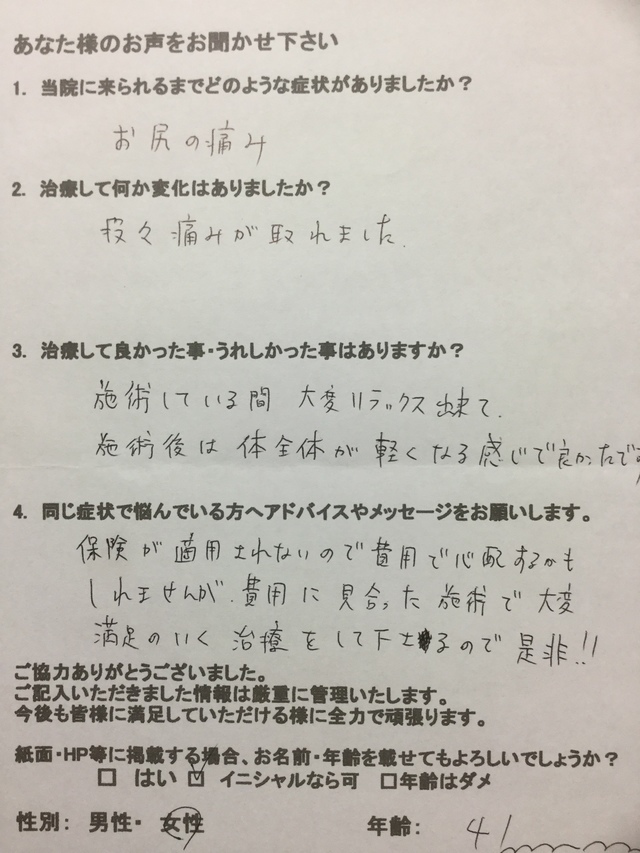 あなた様のお声をお聞かせ下さい
1. 当院に来られるまでどのような症状がありましたか？
お尻の痛み
2. 治療して何か変化はありましたか？
段々痛みが取れました.
3. 治療して良かった事・うれしかった事はありますか？
施術している間 大変リラックス出来て、
施術後は体全体が軽くなる感じで良かったです
4. 同じ症状で悩んでいる方へアドバイスやメッセージをお願いします。
保険が適用されないので費用で心配するかも
しれませんが、費用に見合った施術で大変
満足のいく治療をして下さるので是非!!
ご協力ありがとうございました。
ご記入いただきました情報は厳重に管理いたします。
今後も皆様に満足していただける様に全力で頑張ります。
紙面・HP等に掲載する場合、お名前・年齢を載せてもよろしいでしょうか？
□ はい ☑ イニシャルなら可 □年齢はダメ
性別： 男性・ 女性 年齢： 41